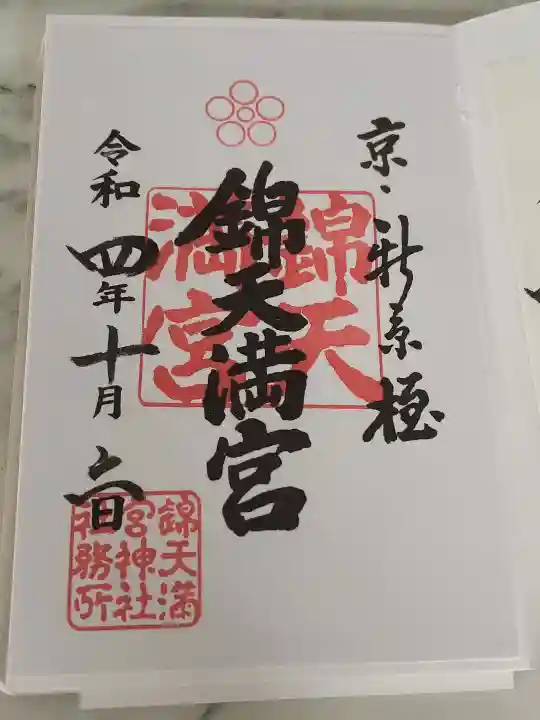 京・新京極
錦天満宮
錦天
満宮
令和四年十月六日
錦天満
宮神社
社務所